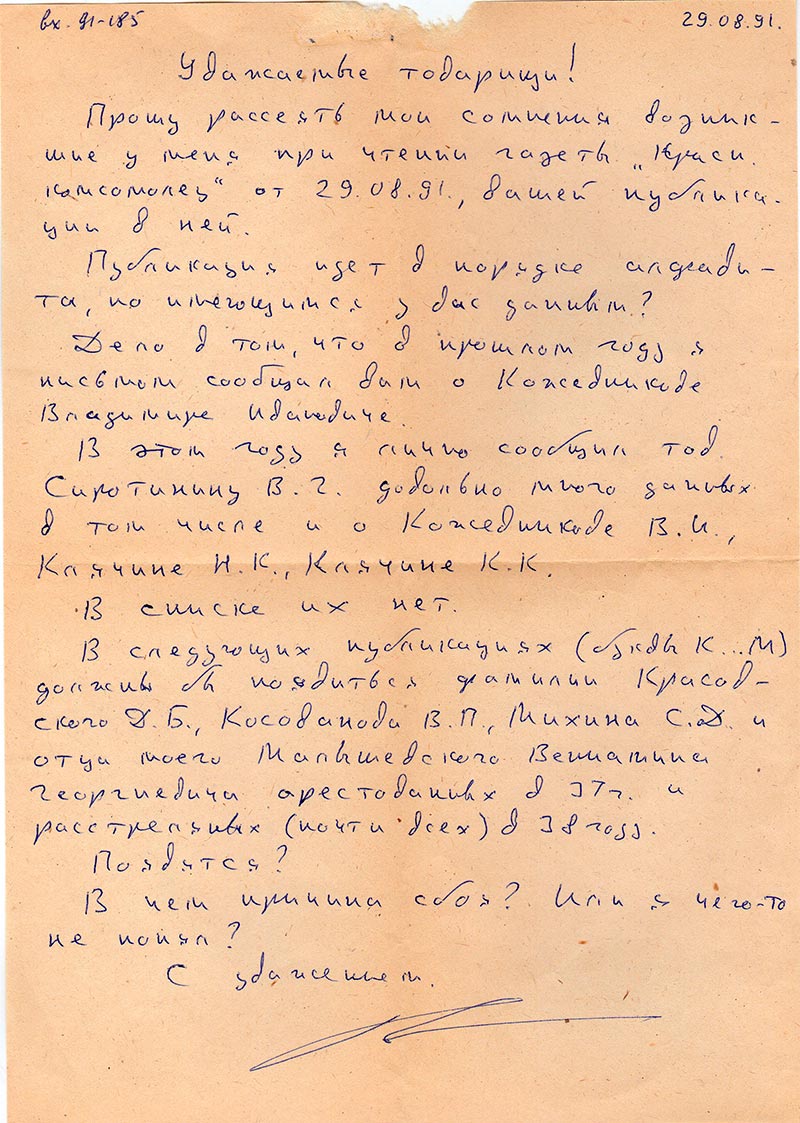 вх. 91-185
29.08.91.
Уважаемые товарищи!
Прошу рассеять мои сомнения возник-
шие у меня при чтении газеты „Красн.
комсомолец“ от 29.08.91., вашей публика-
ции в ней.
Публикация идет в порядке алфави-
та, по имеющимся у вас данным?
Дело в том, что в прошлом году я
письмом сообщал вам о Кожевникове
Владимире Ивановиче.
В этом году я лично сообщил тов.
Сиротинину В.Г. довольно много данных
в том числе и о Кожевникове В.И.,
Клячине Н.К., Клячине К.К.
В списке их нет.
В следующих публикациях (буквы К...М)
должны бы появиться фамилии Красов-
ского Д.Б., Косованова В.П., Михина С.Д. и
отца моего Малышевского Вениамина
Георгиевича арестованных в 37г. и
расстрелянных (почти всех) в 38 году.
Появятся?
В чем причина сбоя? Или я чего-то
не понял?
С уважением.